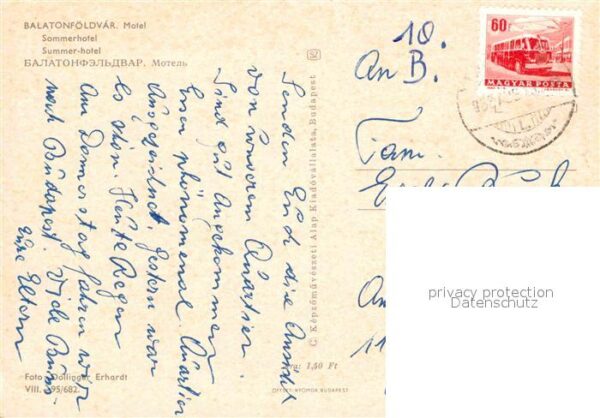 BALATONFÖLDVÁR. Motel
Sommerhotel
Summer-hotel
БАЛАТОНФЭЛЬДВАР. Мотель
Senden Euch diese Ansicht
von unserem Quartier.
Sind gut Angekommen
Essen phänomenal. Quartier
Ausgezeichnet. Gestern war
es schön. Heute Regen
Am Donnerstag fahren wir
nach Budapest. Viele
Eure Eltern
Foto: Dollinger Erhardt
VIII. 95/682.
C. Képzőművészeti Alap Kiadóvállalata, Budapest
Ára: 1,50 Ft
OFFSET-NYOMDA BUDAPEST
60f
MAGYAR POSTA
10.
An B.
Fam.
An
11
privacy protection
Datenschutz